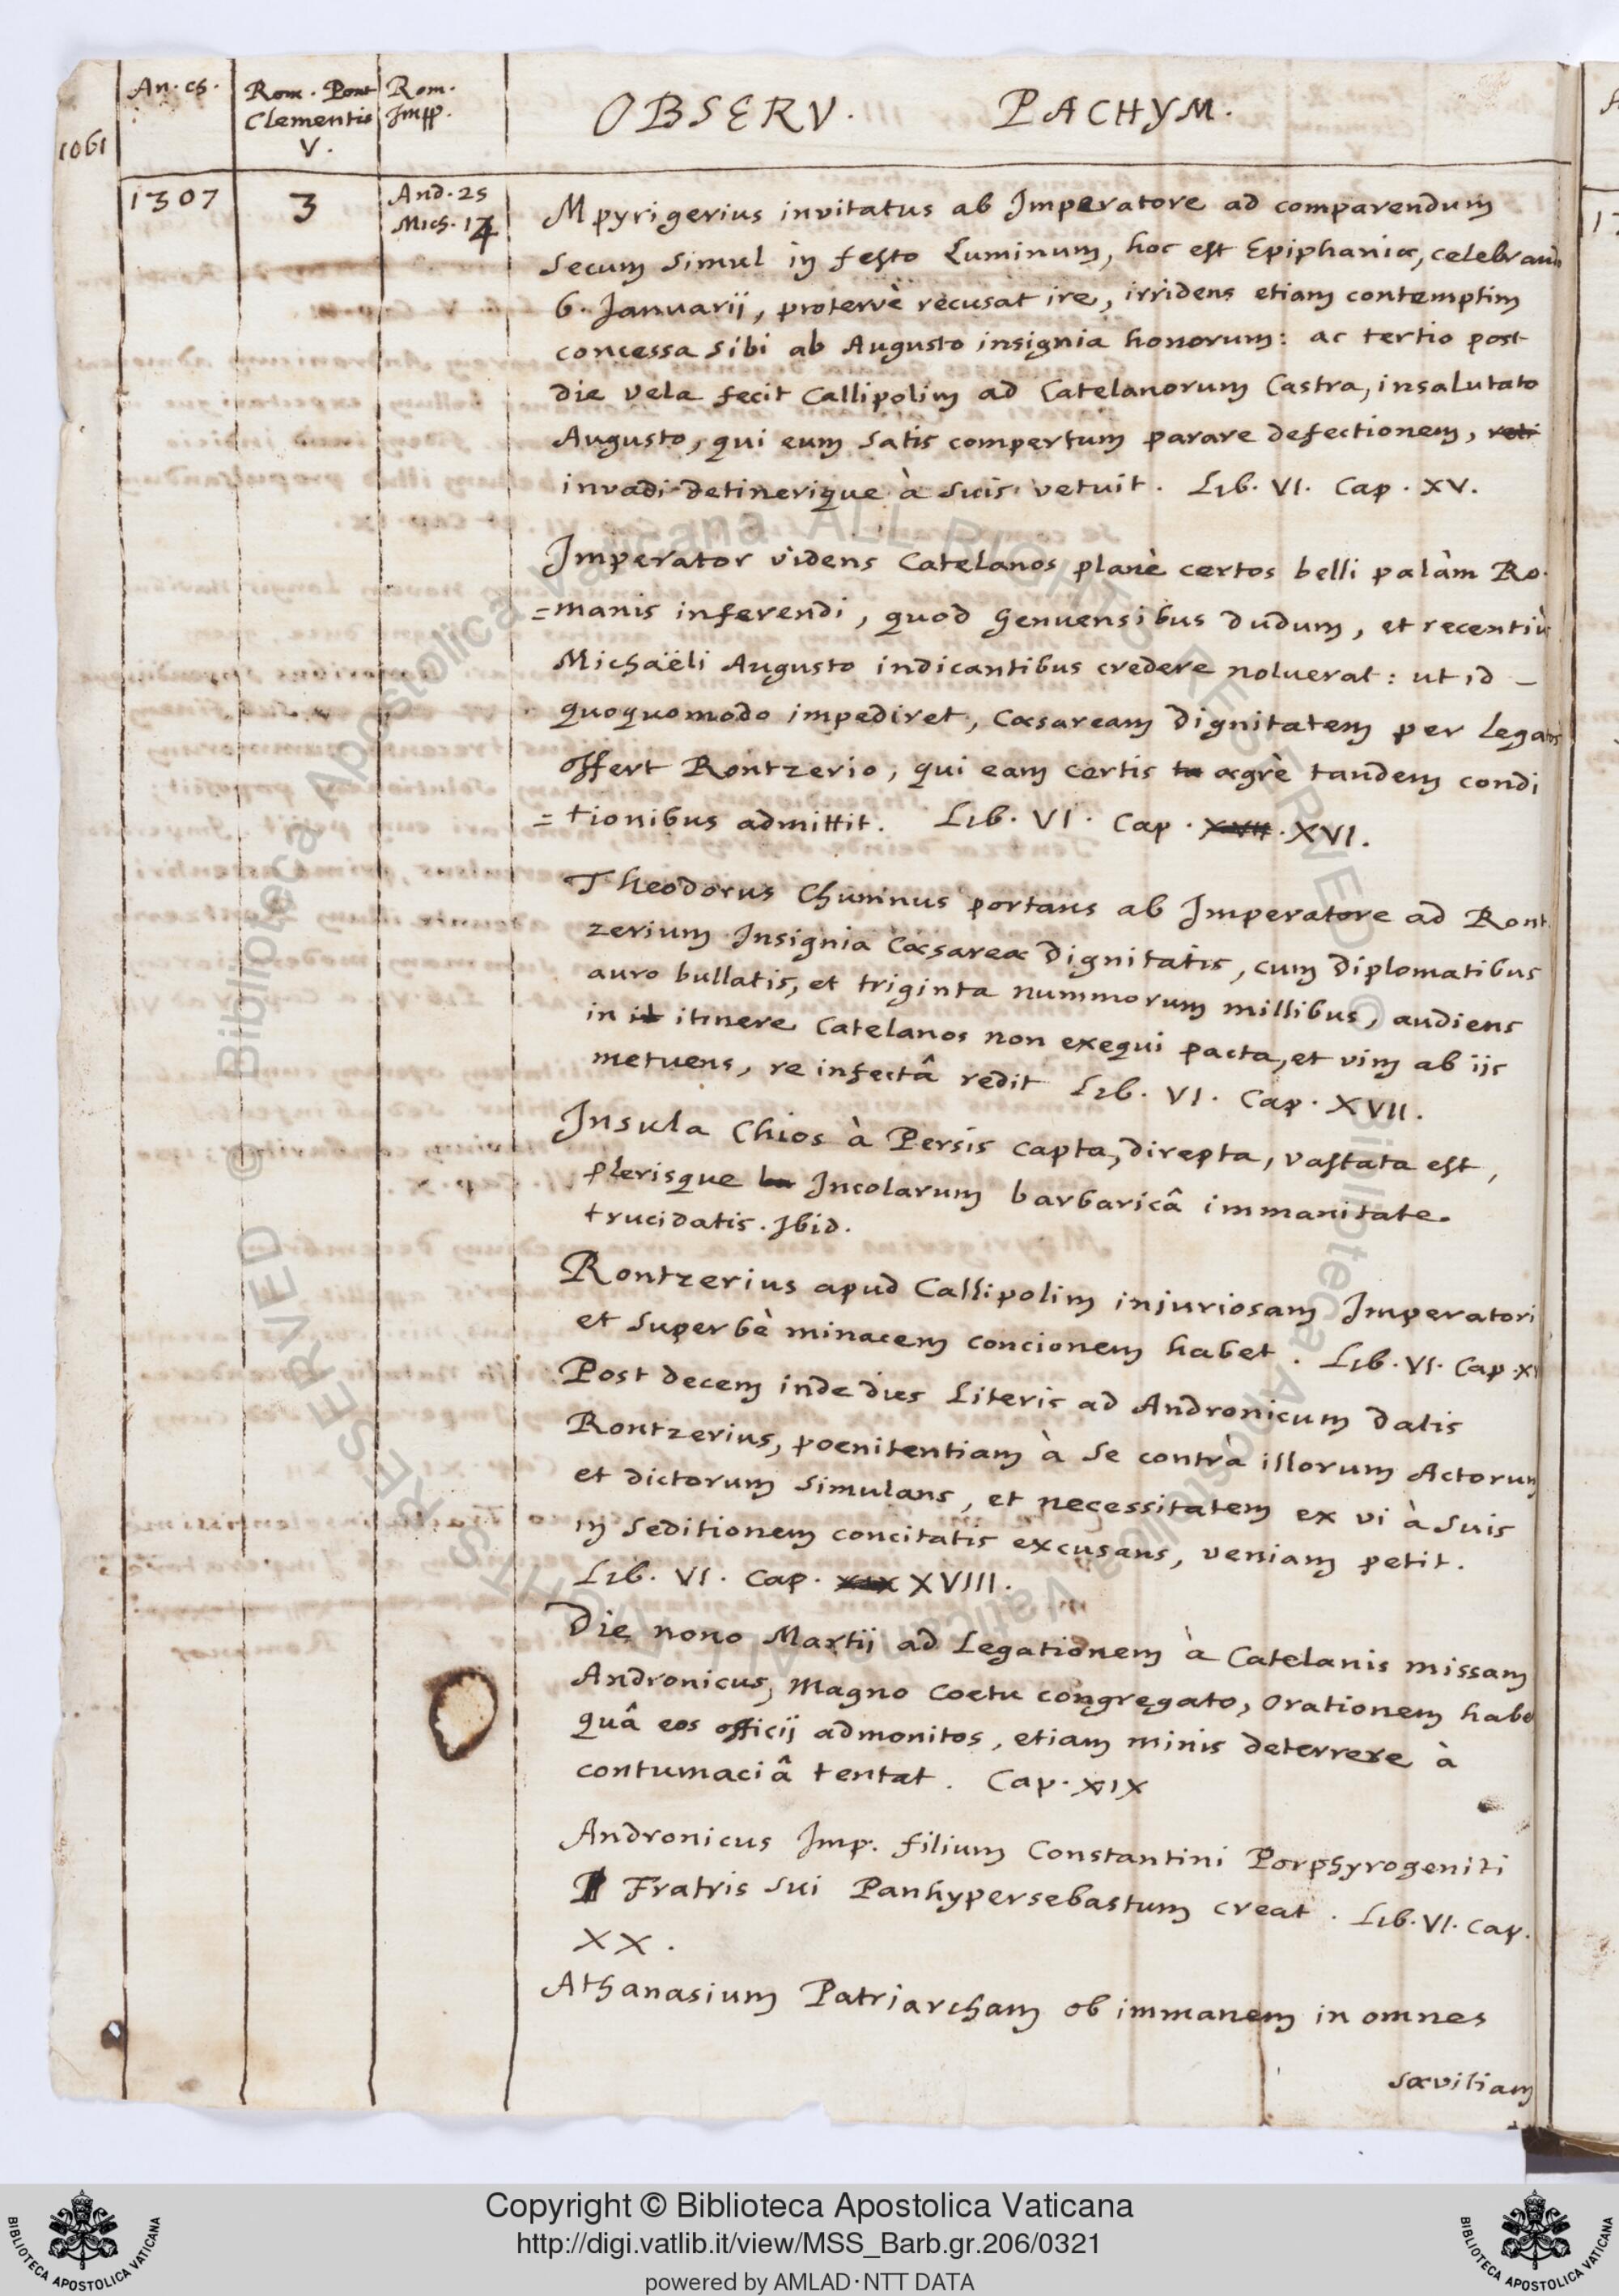 1061
An. cs. Rom. Pont Rom.
Clementis Impp.
V.
OBSERV. PACHYM.
1307 3 And. 25
Mich. 14
Mpyrigerius invitatus ab Imperatore ad comparendum
secum simul in festo Luminum, hoc est Epiphaniæ, celebrand
6. Januarii, protervè recusat ire, irridens etiam contemptim
concessa sibi ab Augusto insignia honorum: ac tertio post
die vela fecit Callipolim ad Catelanorum Castra, insalutato
Augusto, qui eum satis compertum parare defectionem,
invadi detinerique à suis vetuit. Lib. VI. Cap. XV.
Imperator videns Catelanos planè certos belli palàm Ro-
=manis inferendi, quod Genuensibus dudum, et recentiù
Michaëli Augusto indicantibus credere noluerat: ut id –
quoquomodo impediret, Cæsaream Dignitatem per Legatos
offert Rontzerio, qui eam certis ta ægrè tandem condi
=tionibus admittit. Lib. VI. Cap. XVII. XVI.
Theodorus Chumnus portans ab Imperatore ad Ront
zerium Insignia Cæsareæ Dignitatis, cum Diplomatibus
auro bullatis, et triginta nummorum millibus, audiens
in it itinere Catelanos non exequi pacta, et vim ab iis
metuens, re infectâ redit Lib. VI. Cap. XVII.
Insula Chios à Persis capta, direpta, vastata est,
plerisque Incolarum barbaricâ immanitate
trucidatis. Ibid.
Rontzerius apud Callipolim injuriosam Imperatori
et superbè minacem concionem habet. Lib. VI. Cap. XV
Post decem inde dies Literis ad Andronicum datis
Rontzerius, poenitentiam à se contrà illorum Actorum
et dictorum simulans, et necessitatem ex vi à suis
in seditionem concitatis excusans, veniam petit.
Lib. VI. Cap. XIX XVIII.
Die nono Martii ad Legationem à Catelanis missam
Andronicus, magno coetu congregato, Orationem habe
quâ eos officij admonitos, etiam minis deterrere à
contumaciâ tentat. Cap. XIX
Andronicus Imp. filium Constantini Porphyrogeniti
Fratris sui Panhypersebastum creat. Lib. VI. Cap.
XX.
Athanasium Patriarcham ob immanem in omnes
sævitiam
Biblioteca Apostolica Vaticana ALL RIGHTS RESERVED © Biblioteca Apostolica Vaticana ALL RIGHTS RESERVED ©
Copyright © Biblioteca Apostolica Vaticana
http://digi.vatlib.it/view/MSS_Barb.gr.206/0321
powered by AMLAD·NTT DATA
BIBLIOTECA APOSTOLICA VATICANA
BIBLIOTECA APOSTOLICA VATICANA